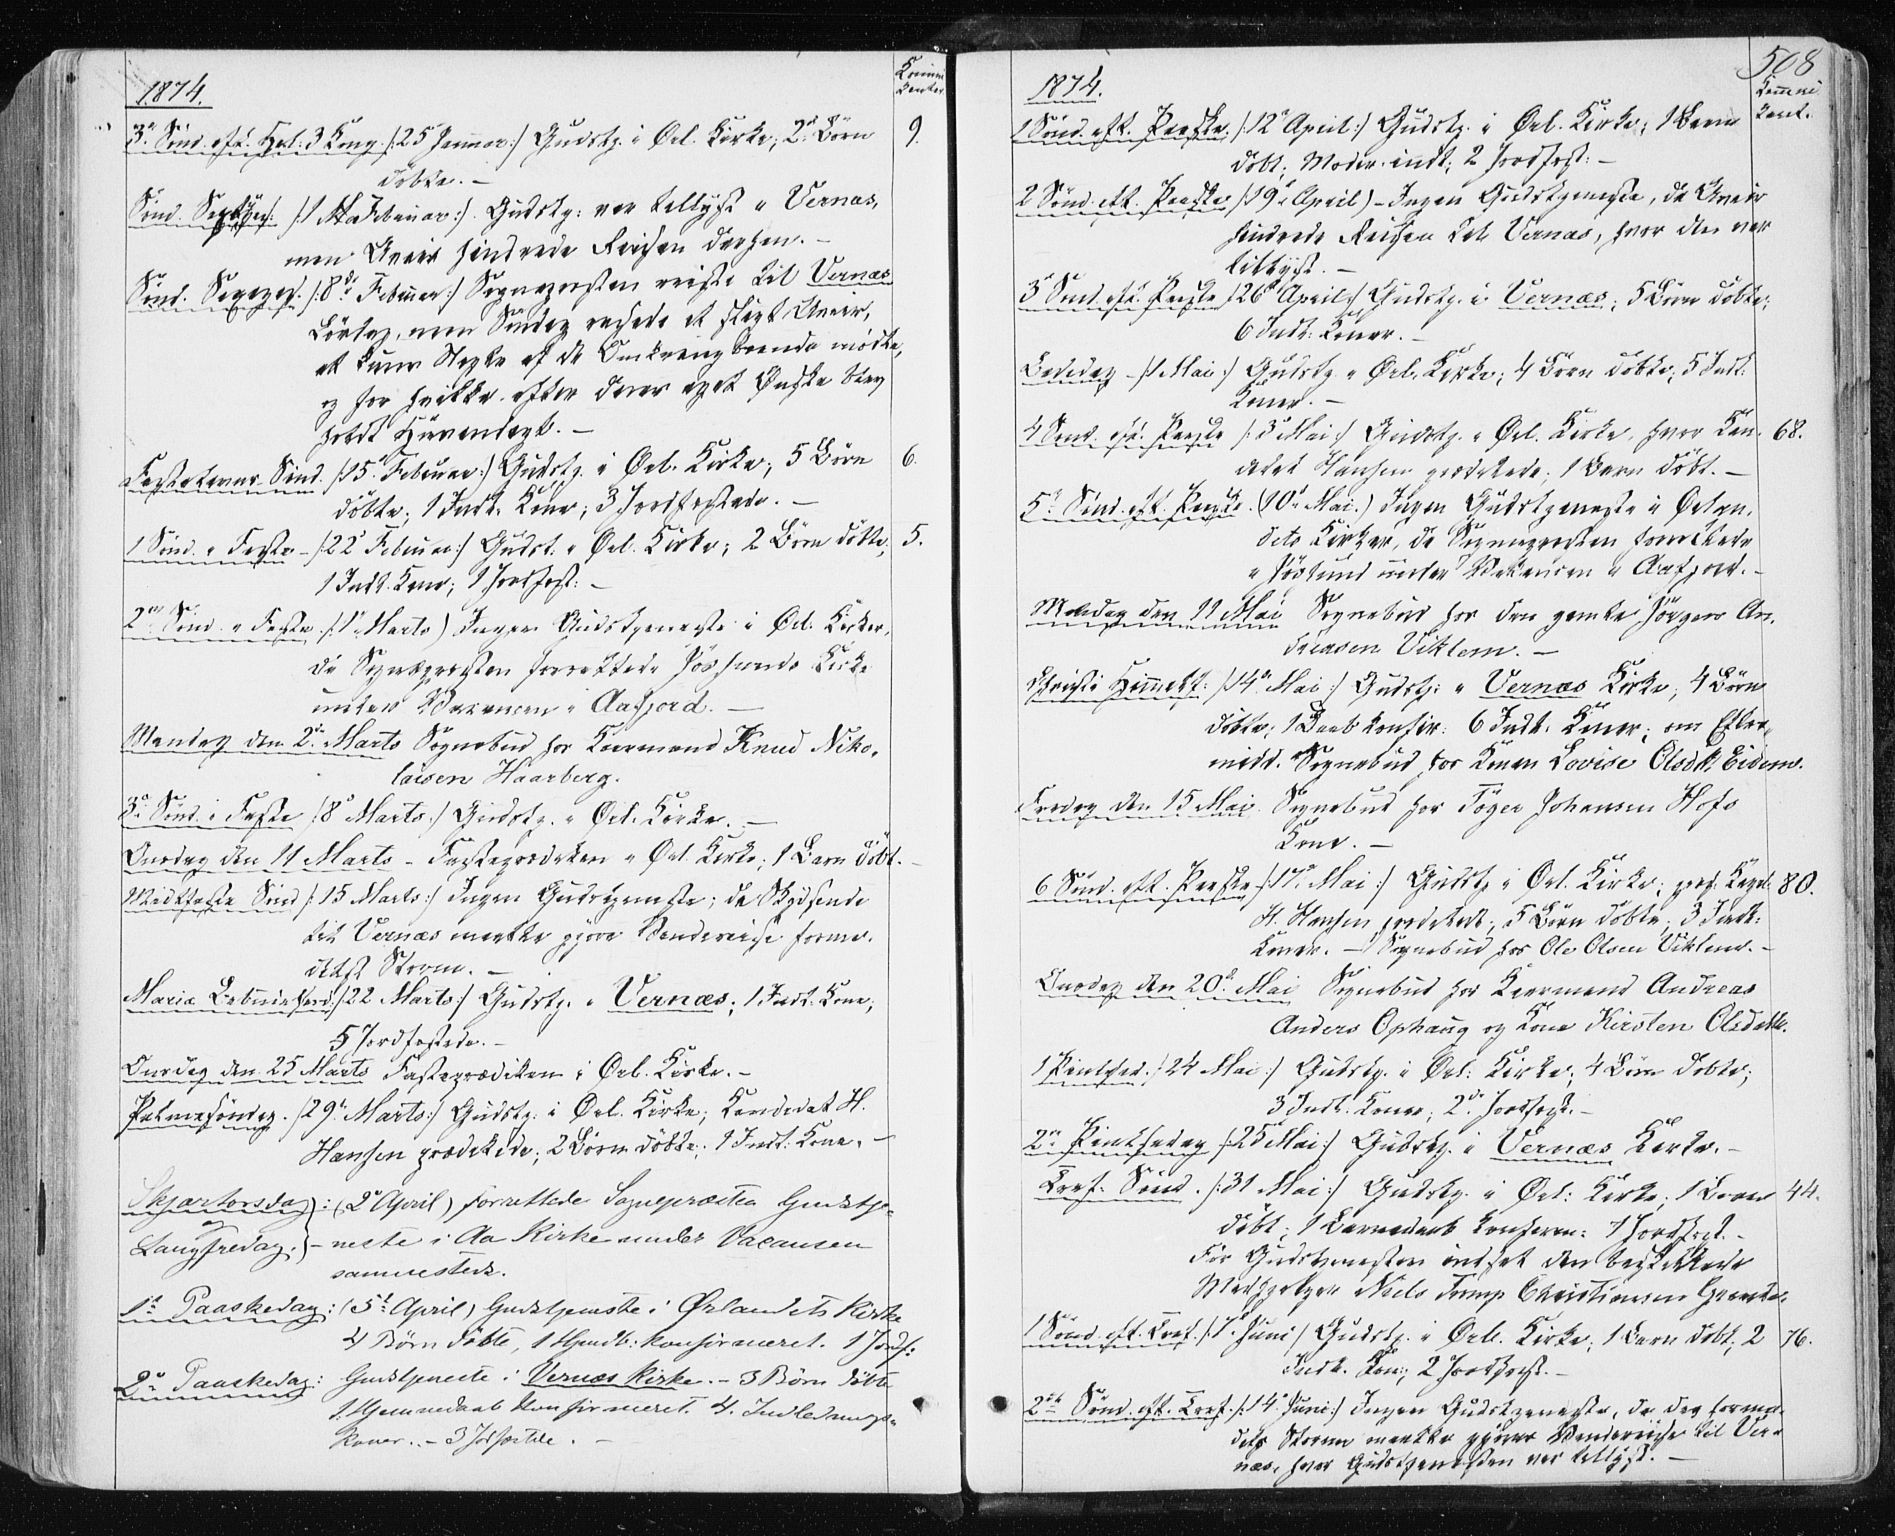 1874.
Kommu
kanter
3die Sönd. eft. Hel. 3 Kong. /: 25 Januar :/ Gudstj. i Örl. Kirke; 2de Börn 9.
döbte. –
Sönd. Septuages. /: 1 Februar :/ Gudstj. var tillyst i Vernæs,
men Uveir hindrede Reisen derhen. –
Sönd. Sexages. /: 8de Februar :/ Sognepresten reiste til Vernæs
Lördag, men Söndag rasede et sligt Uveir,
at kun Nogle af de Omkringboende mödte,
og for hvilke efter deres eget Önske blev
holdt Huusandagt. –
Fastelavns Sönd. /: 15 Februar :/ Gudstj. i Örl. Kirke; 5 Börn 6.
döbte; 1 Indl. Kone; 3 Jordfæstede. –
1 Sönd. i Faste – /: 22 Februar :/ Gudst. i Örl. Kirke; 2 Börn döbte; 5.
1 Indl. Kone; 1 Jordfæst. –
2den Sönd. i Faste /: 1 Marts) Ingen Gudstjeneste i Örl. Kirker,
da Sognepresten forrettede Jössunds Kirke
under Vacancen i Aafjord. –
Mandag den 2de Marts Sognebud hos Kaarmand Knud Niko-
laisen Haarberg.
3die Sönd. i Faste /: 8 Marts :/ Gudstj. i Örl. Kirke. –
Onsdag den 11 Marts – Fasteprædiken i Örl. Kirke; 1 Barn döbt. –
Midtfaste Sönd /: 15 Marts :/ Ingen Gudstjeneste; da Skydsende
til Vernæs maatte gjöre Vendereise forme-
delst Storm. –
Mariæ Bebudelsesd. /: 22 Marts :/ Gudstj. i Vernæs; 1 Indl. Kone;
5 Jordfæstede. –
Onsdag den 25 Marts Fasteprædiken i Örl. Kirke. –
Palmesöndag. /: 29 Marts :/ Gudstj. i Örl. Kirke; Kandidat H.
Hansen prædikede; 2 Börn döbte; 1 Indl. Kone. –
Skjærtorsdag : (2 April) forrettede Sognepræsten Gudstje-
og
Langfredag : – neste i Aa Kirke under Vacansen
sammesteds.
1ste Paaskedag : (5te April) Gudstjeneste i Ørlandets Kirke
4 Børn døbte, 1 Hjemdb: konfirmeret. 1 Jordf:
2den Paaskedag : Gudstjeneste i Vernæs Kirke. – 3 Børn døbte
1 Hjemmedaab konfirmeret. 4. Indlednings-
koner. – 3 Jdfæstede. –
508
1874.
Kommu
kant.
1 Sönd. eft. Paaske. /: 12 April :/ Gudstj. i Örl. Kirke; 1 Barn
döbt; Moder indl.; 2 Jordfæst: –
2 Sönd. eft. Paaske /: 19 April) – Ingen Gudstjeneste, da Uveir
hindrede Reisen til Vernæs, hvor den var
tillyst. –
3 Sönd. eft. Paaske /: 26 April :/ Gudstj. i Vernæs; 5 Börn döbte;
6 Indl. Koner. –
Bededag – /: 1 Mai :/ Gudstj. i Örl. Kirke; 4 Börn döbte; 5 Indl.
Koner. –
4 Sönd. eft. Paaske /: 3 Mai :/ Gudstj. i Örl. Kirke, hvor Kan- 68.
didat Hansen prædikede; 1 Barn döbt. –
5te Sönd. eft. Paaske. (10 Mai.) Ingen Gudstjeneste i Örlan-
dets Kirker, da Sognepresten forrettede
i Jössund under Vakancen i Aafjord. –
Mandag den 11 Mai Sognebud hos den gamle Jörgen An-
dreasen Viklem. –
Christi Himmelf: /: 14 Mai :/ Gudstj: i Vernæs Kirke; 4 Börn
döbte; 1 Daab konfir: 6 Indl. Koner; om Efter-
midd. Sognebud hos Konen Lovise Olsdtr. Eidem.
Fredag den 15 Mai. Sognebud hos Töger Johansen Hofs
Kone. –
6 Sönd. eft. Paaske /: 17 Mai :/ Gudstj i Örl. Kirke; pers. Kapel. 80.
H. Hansen prædikede; 5 Börn döbte; 3 Indl:
Koner. – Sognebud hos Ole Olsen Viklem. –
Onsdag den 20 Mai Sognebud hos Kaarmand Andreas
Anders Ophaug og Kone Kirsten Olsdatt.
1 Pintsed. /: 24 Mai :/ Gudstj. i Örl: Kirke; 4 Börn döbte;
3 Indl. Koner; 2de Jordfæst. –
2den Pintsedag /: 25 Mai :/ Gudstj. i Vernæs Kirke. –
Tref. Sönd. /: 31 Mai :/ Gudstj. i Örl: Kirke; 1 Barn 44.
döbt; 1 Barnedaab konfirm: 1 Jordfæst. –
Før Gudstjenesten indsat den beskikkede
Medhjælper Niels Tramp Christiansen
1 Sönd. eft. Tref. /: 7 Juni / Gudstj. i Örl. Kirke; 1 Barn döbt; 2 76.
Indl. Kon; 2 Jordfæst. –
2den Sönd. eft. Tref. /: 14 Juni :/ Ingen Gudstjeneste, da jeg forme-
delst Storm maatte gjöre Vendereise til Ver-
næs, hvor Gudstjenesten var tillyst. –